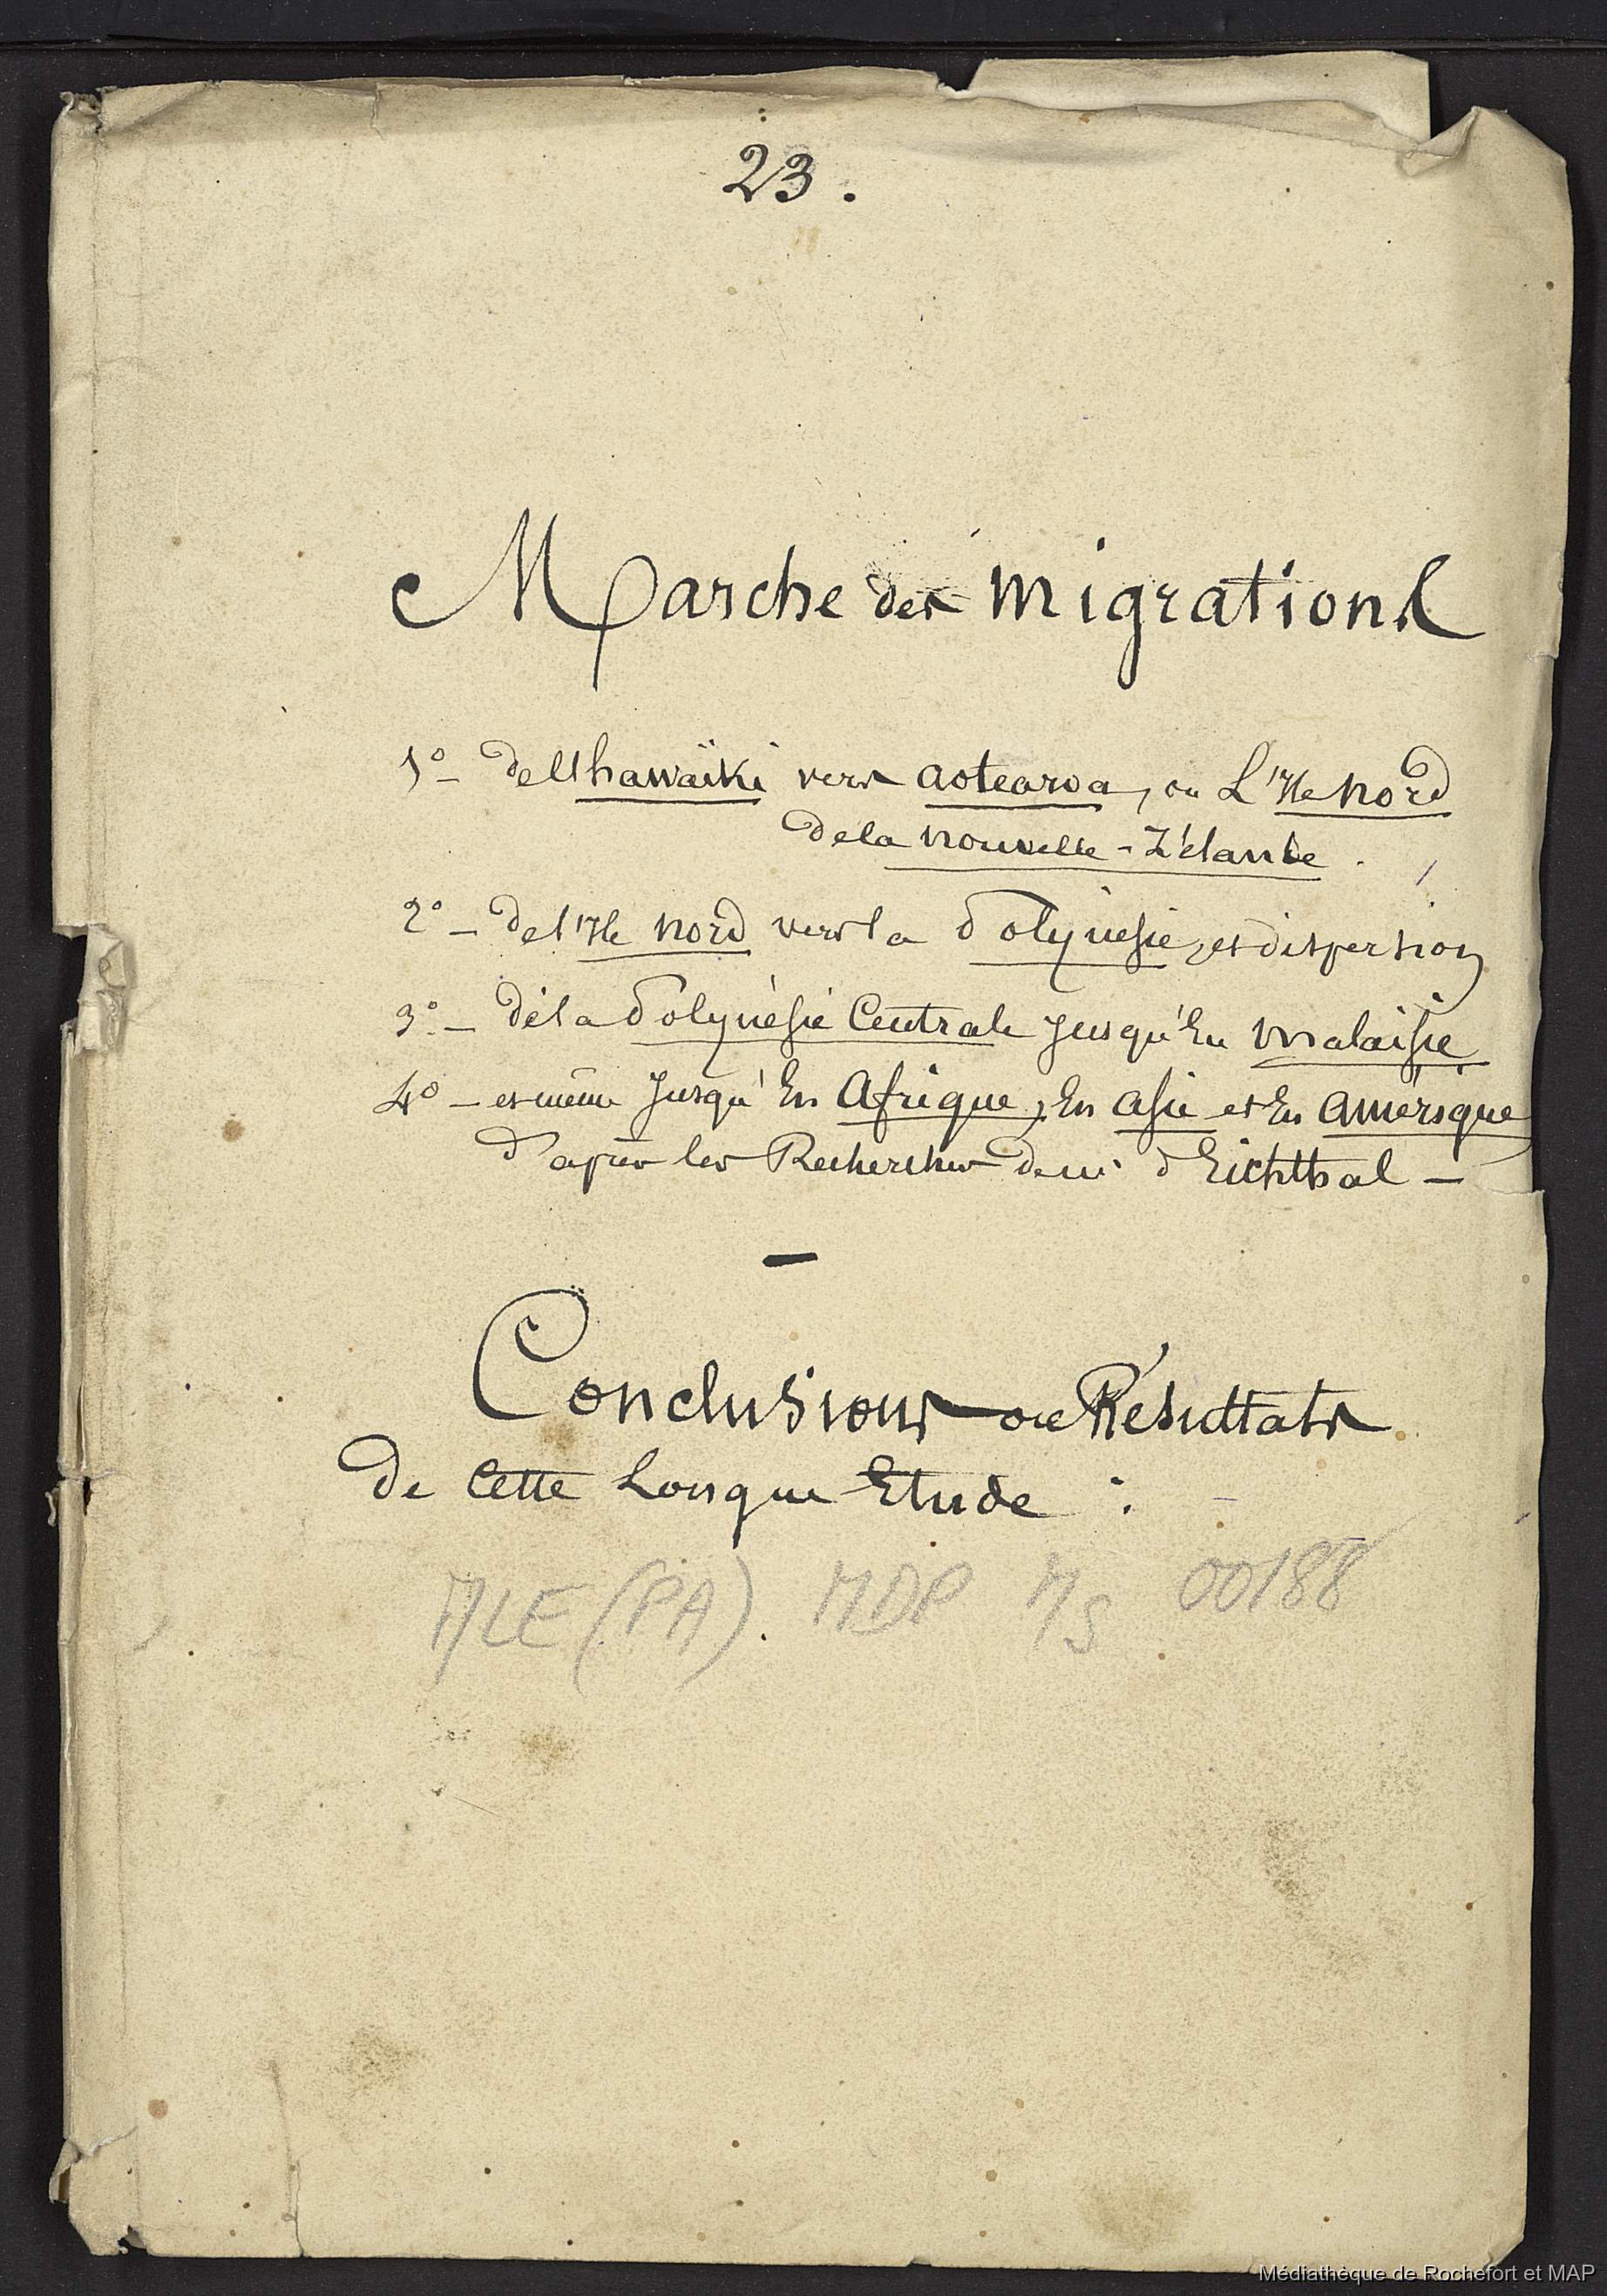 23.
Marche des Migrations
1º — de l'hawaïki vers aotearoa, ou L'Ile nord
de la nouvelle-Zélande.
2º — de l'Ile nord vers la Polynésie, et dispersion
3º — de la Polynésie Centrale jusqu'En Malaisie
4º — et même jusqu'En Afrique, En asie et En amérique
d'après les Recherches de Mr d'Eichthal —
—
Conclusions ou Résultats
de Cette Longue Etude :
MLE (PA). MDP Ms 00188
Médiathèque de Rochefort et MAP